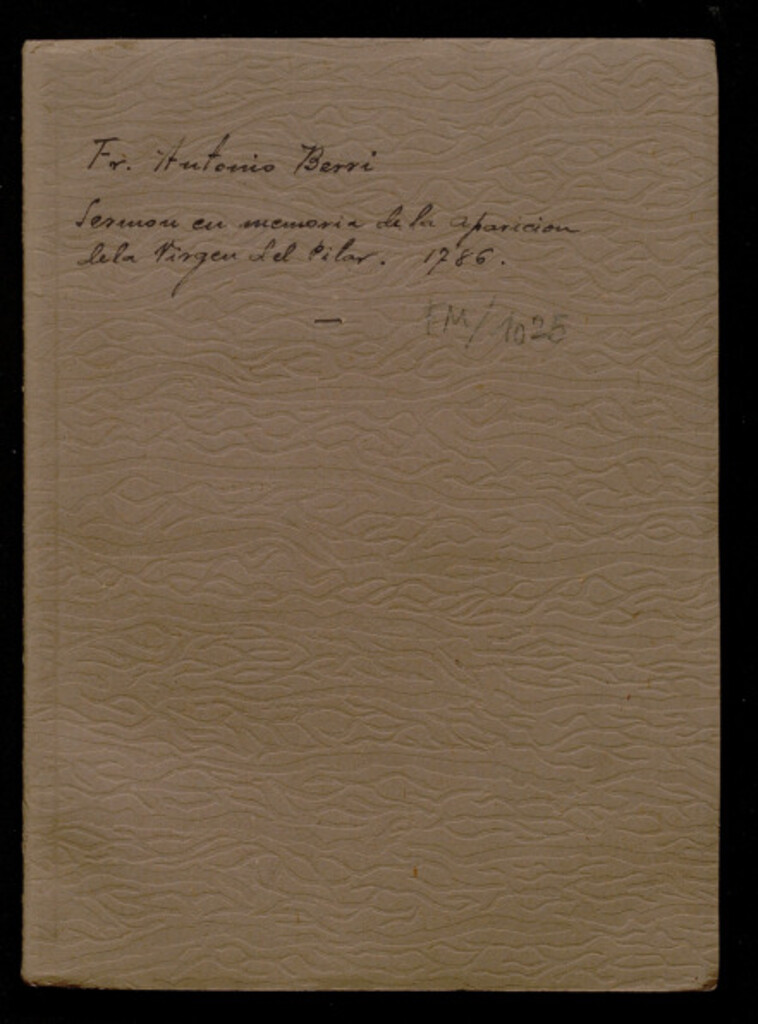 Fr. Antonio Berri
Sermon en memoria de la aparicion
dela Virgen del Pilar. 1786.
—
FM/1025